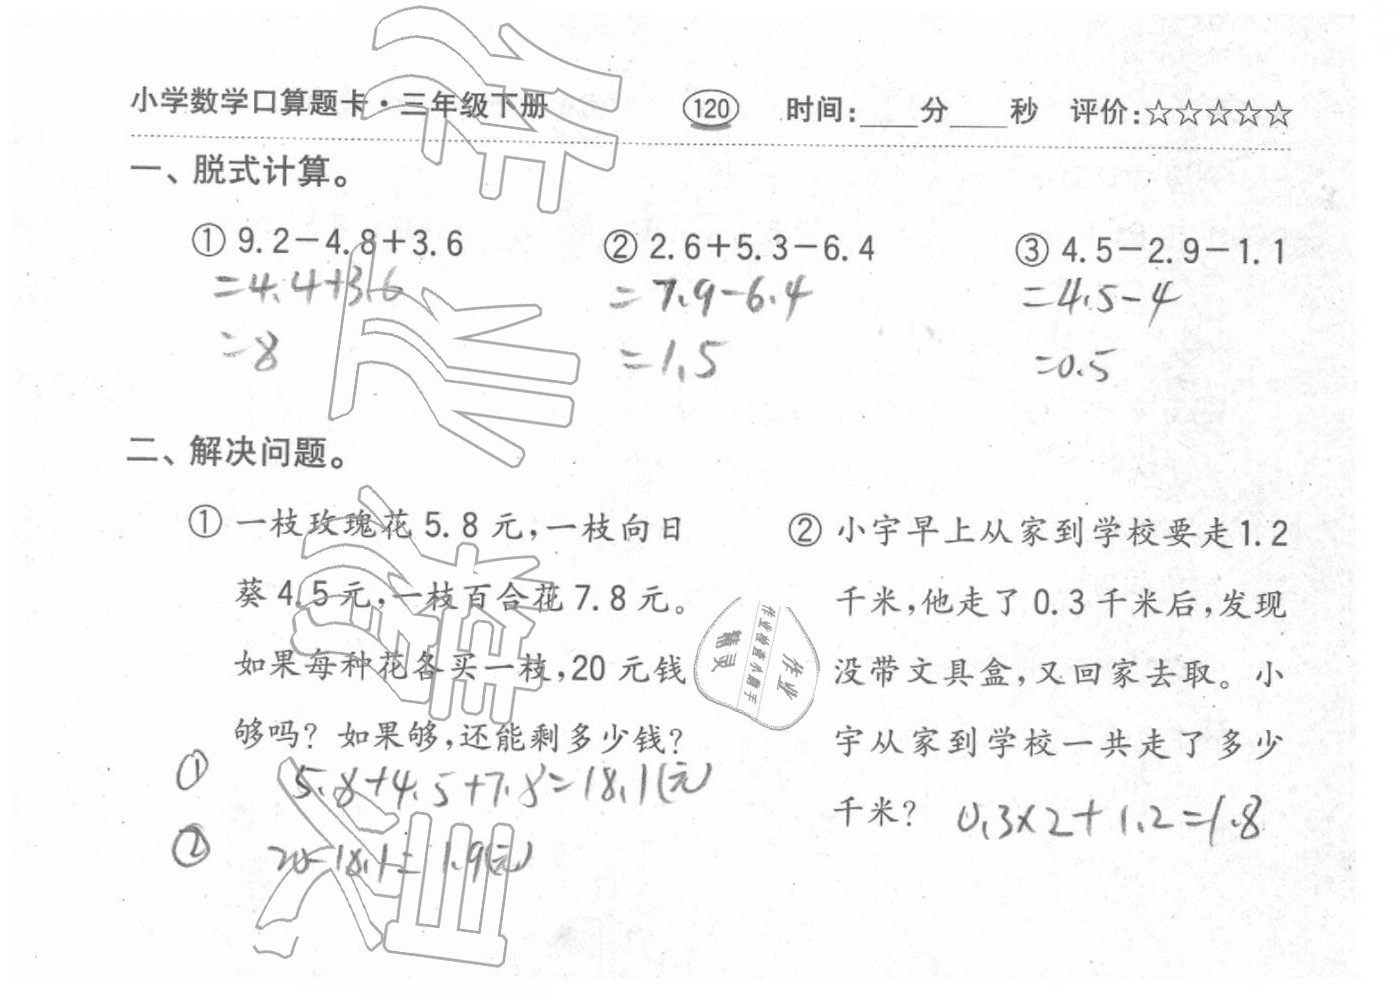 小学数学口算题卡·三年级下册 120 时间:____分____秒 评价:☆☆☆☆☆
一、脱式计算。
① 9.2-4.8+3.6 ② 2.6+5.3-6.4 ③ 4.5-2.9-1.1
=4.4+3.6 =7.9-6.4 =4.5-4
=8 =1.5 =0.5
二、解决问题。
① 一枝玫瑰花5.8元,一枝向日
葵4.5元,一枝百合花7.8元。
如果每种花各买一枝,20元钱
够吗? 如果够,还能剩多少钱?
① 5.8+4.5+7.8=18.1(元)
② 20-18.1=1.9(元)
② 小宇早上从家到学校要走1.2
千米,他走了0.3千米后,发现
没带文具盒,又回家去取。小
宇从家到学校一共走了多少
千米? 0.3×2+1.2=1.8
作业
作业检查小助手
精灵